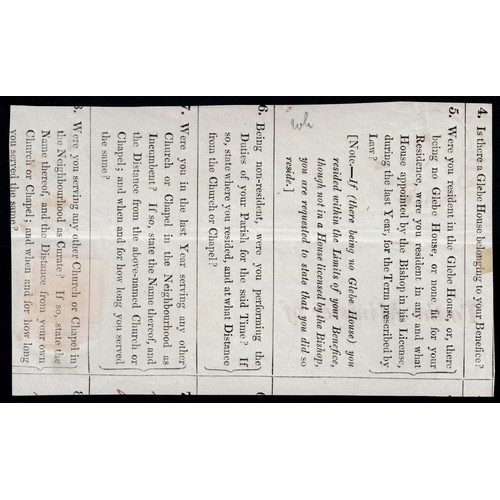 4. Is there a Glebe House belonging to your Benefice?
5. Were you resident in the Glebe House, or, there
being no Glebe House, or none fit for your
Residence, were you resident in any and what
House appointed by the Bishop in his License,
during the last Year, for the Term prescribed by
Law?
[Note.—If (there being no Glebe House) you
resided within the Limits of your Benefice,
though not in a House licensed by the Bishop,
you are requested to state that you did so
reside.]
6. Being non-resident, were you performing the
Duties of your Parish for the said Time? If
so, state where you resided, and at what Distance
from the Church or Chapel?
7. Were you in the last Year serving any other
Church or Chapel in the Neighbourhood as
Incumbent? If so, state the Name thereof, and
the Distance from the above-named Church or
Chapel; and when and for how long you served
the same?
8. Were you serving any other Church or Chapel in
the Neighbourhood as Curate? If so, state the
Name thereof, and the Distance from your own
Church or Chapel; and when and for how long
you served the same?
7
8